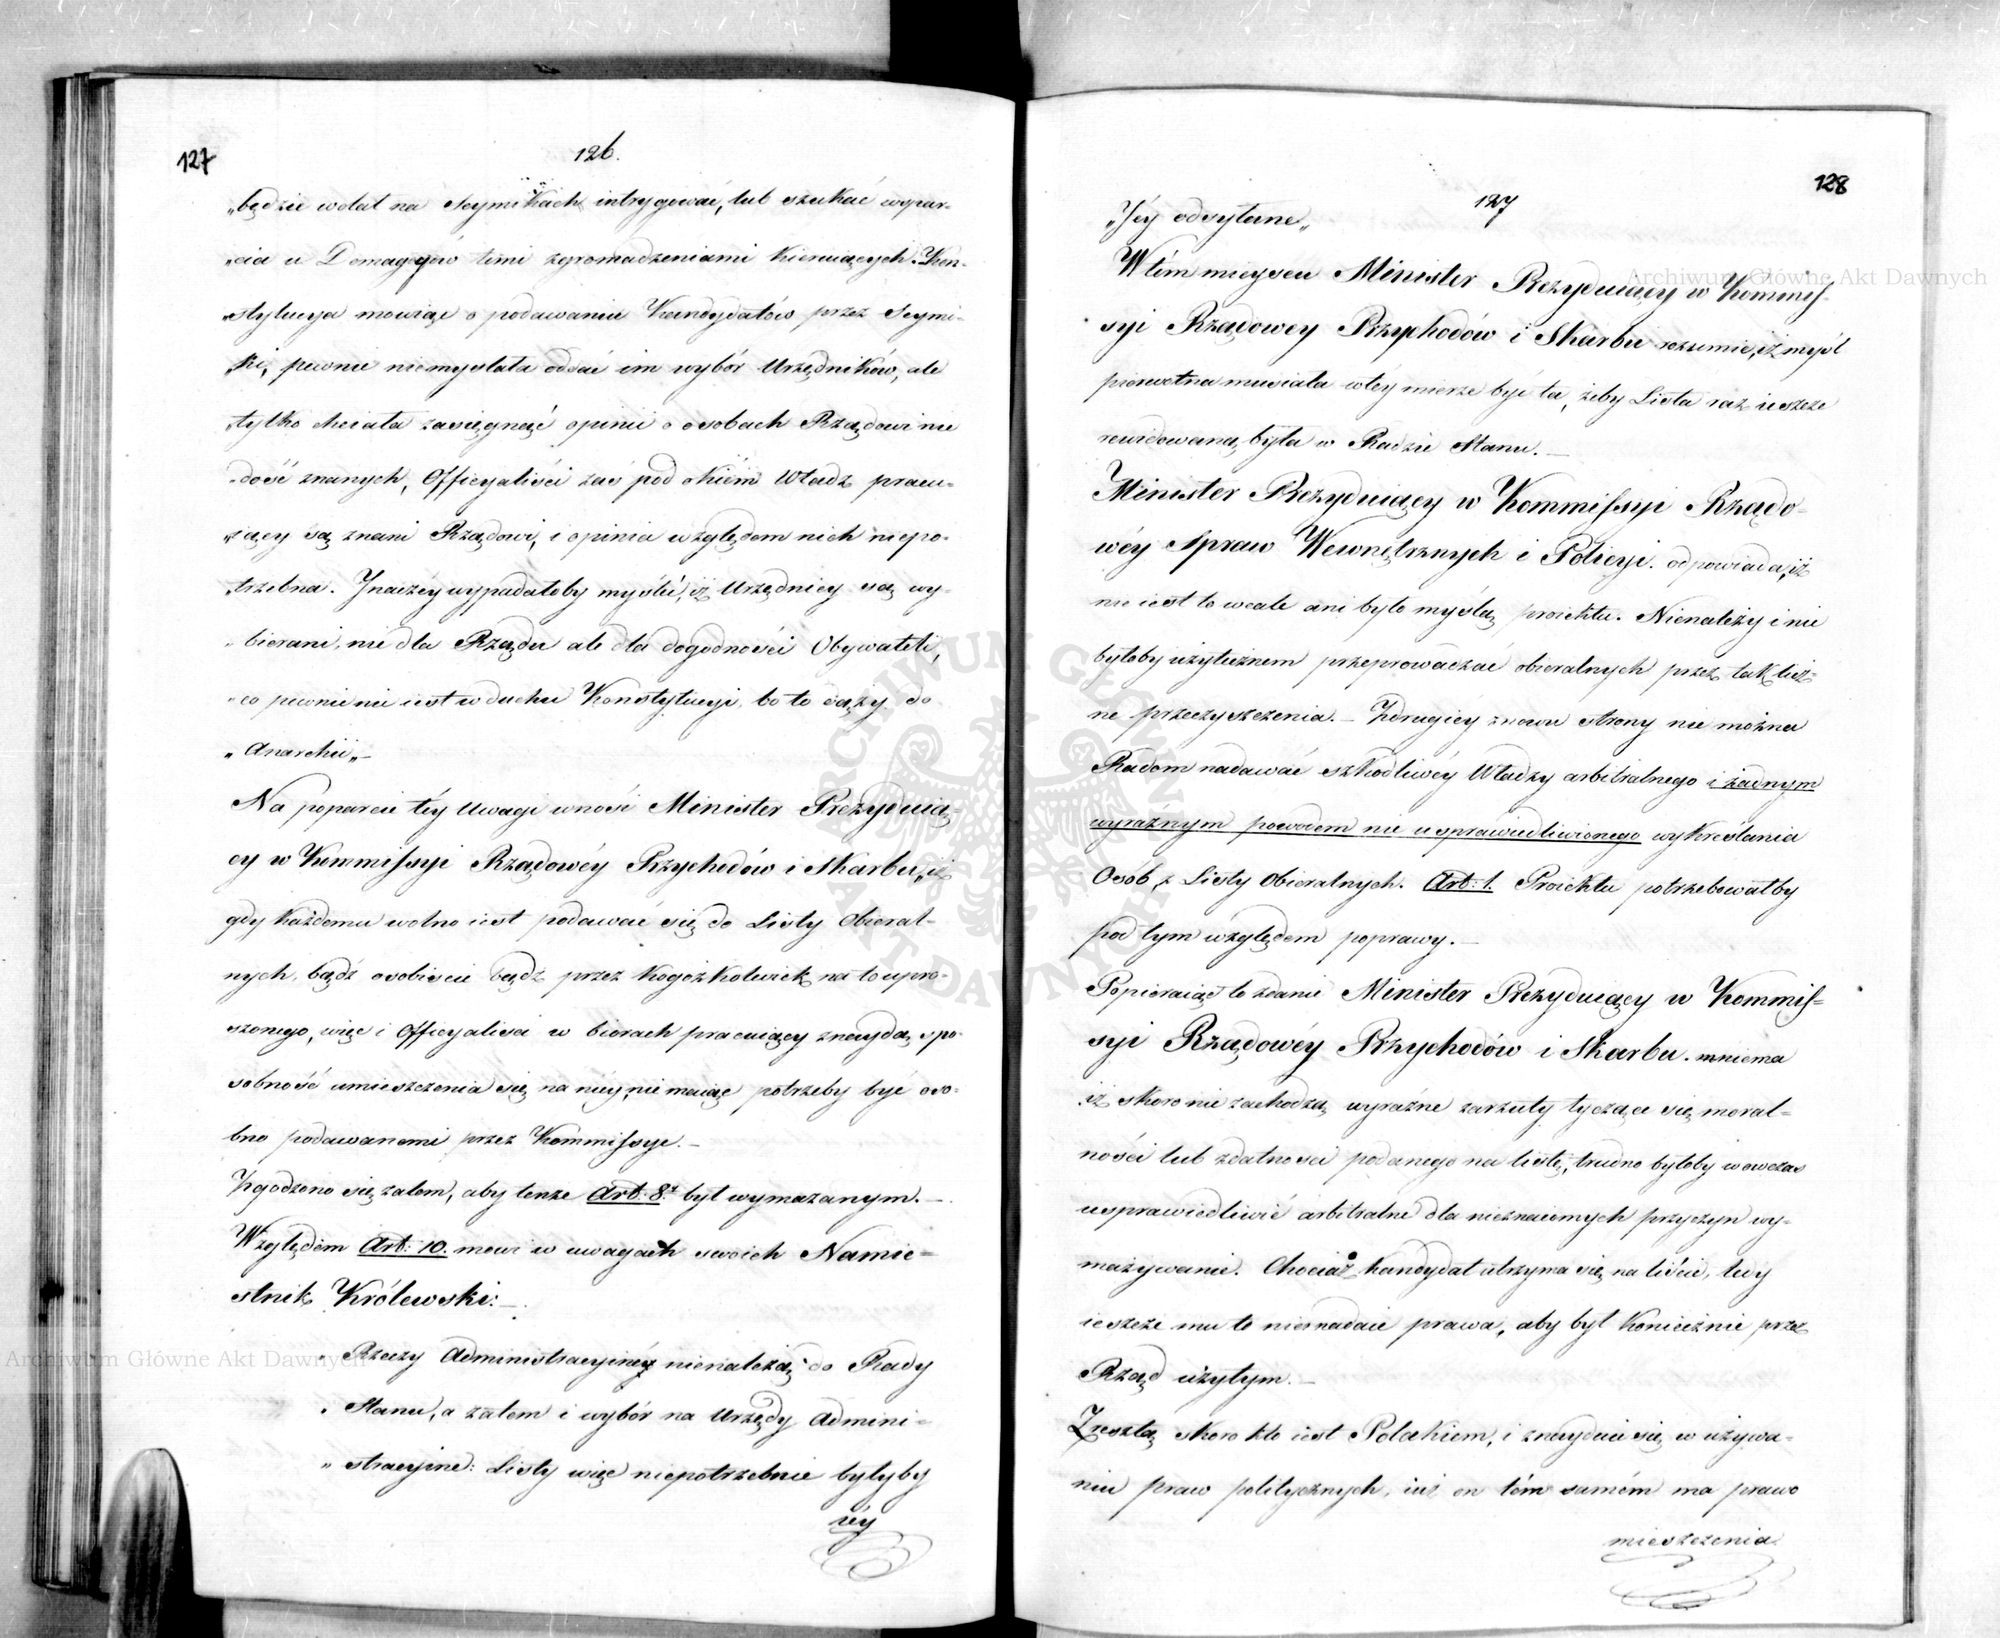 127
126.
„będzie wolał na Seymikach intrygować, lub szukać wspar-
„cia u Demagogów temi zgromadzeniami kieruiących. Kon-
„stytucya mowiąc o podawaniu Kandydatów przez Seymi-
„ki, pewnie niemyślała oddać im wybór Urzędników, ale
„tylko chciała zasięgnąć opinii o osobach Rządowi nie
„dość znanych, Officyaliści zaś pod okiem Władz pracu-
„iący są znani Rządowi, i opinia względem nich niepo-
„trzebna. Inaczéy wypadałoby myśleć, iż Urzędnicy są wy-
„bierani, nie dla Rządu ale dla dogodności Obywateli,
„co pewnie nie iest w duchu Konstytucyi, bo to dąży do
„Anarchii„—
Na poparcie téy Uwagi wnosi Minister Prezyduią-
cy w Kommissyi Rządowéy Przychodów i Skarbu, iż
gdy każdemu wolno iest podawać się do Listy Obieral-
nych, bądź osobiscie bądź przez kogoźkolwiek na to upro-
szonego, więc i Officyalisci w biorach pracuiący znaydą spo-
sobność umieszczenia się na niéy, nie maiąc potrzeby być oso-
bno podawanemi przez Kommissye.—
Zgodzono się zatem, aby tenże Art: 8ý był wymazanym.—
Względem Art: 10. mowi w uwagach swoich Namie-
stnik Królewski:—
„Rzeczy Administracyiney nienależą do Rady
„Stanu, a zatem i wybór na Urzędy Admini-
„stracyine: Listy więc niepotrzebnie byłyby
iéy
128
127
„Jéy odsyłane„
W tém mieyscu Minister Prezyduiący w Kommis-
syi Rządowey Przychodów i Skarbu rozumie, iż myśl
pierwotna musiała w téy mierze być ta, żeby Lista raz ieszcze
rewidowaną była w Radzie Stanu.—
Minister Prezyduiący w Kommissyi Rządo-
wéy Spraw Wewnętrznych i Policyi. odpowiada, iż
nie iest to wcale ani było myślą proiektu. Nienależy i nie
byłoby użytecznem przeprowadzać obieralnych przez tak licz-
ne przeczyszczenia.— Zdrugiey znowu strony nie można
Radom nadawać szkodliwéy Władzy arbitralnego i żadnym
wyraźnym powodem nie usprawiedliwionego wykreślania
Osób, z Listy Obieralnych. Art: 1. Proiektu potrzebowałby
pod tym względem poprawy.—
Popieraiąc to zdanie Minister Prezyduiący w Kommis-
syi Rządowéy Przychodów i Skarbu. mniema
iż skoro nie zachodzą wyraźne zarzuty tyczące się moral-
ności lub zdatności podanego na listę, trudno byłoby wowczas
usprawiedliwić arbitralne dla nieznaiomych przyczyn wy-
mazywanie. Chociaż kandydat utrzyma się na liście, tedy
ieszcze mu to nienadaie prawa, aby był koniecznie przez
Rząd użytym.—
Zresztą skoro kto iest Polakiem, i znayduie się w używa-
niu praw politycznych, iuż on tém samém ma prawo
mieszczenia
Archiwum Główne Akt Dawnych
Archiwum Główne Akt Dawnych
ARCHIWUM GŁÓWNE AKT DAWNYCH